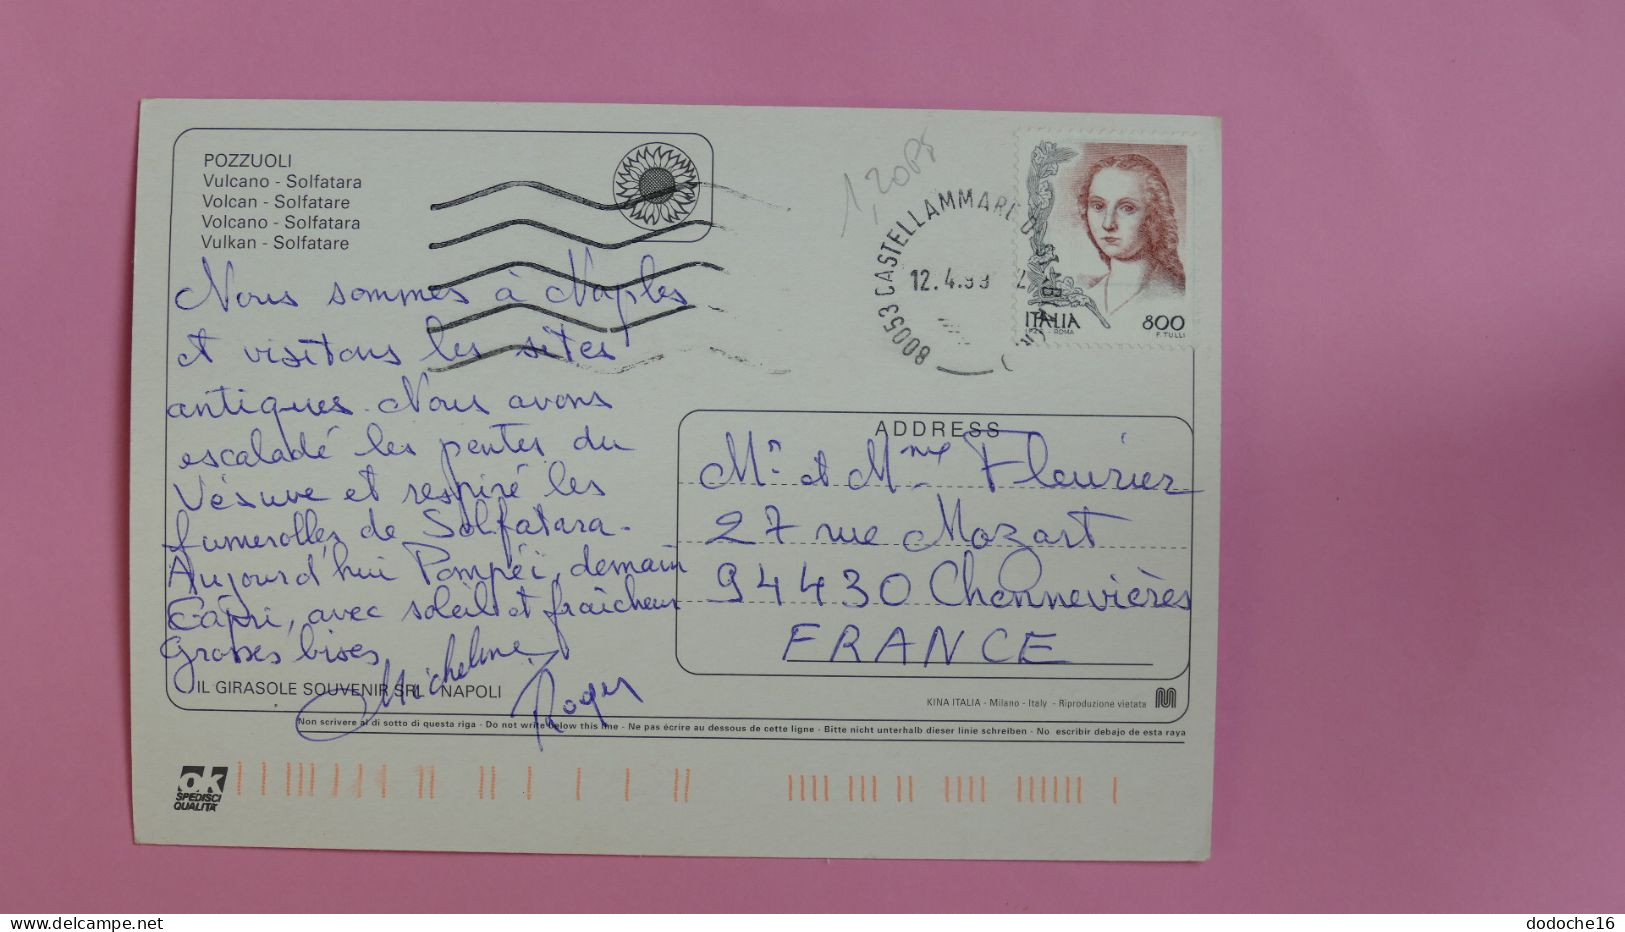 POZZUOLI
Vulcano - Solfatara
Volcan - Solfatare
Volcano - Solfatara
Vulkan - Solfatare
Nous sommes à Naples
et visitons les sites
antiques. Nous avons
escaladé les pentes du
Vésuve et respiré les
fumerolles de Solfatara.
Aujourd'hui Pompéï, demain
Capri, avec soleil et fraîcheur
Grosses bises
Micheline
Roger
IL GIRASOLE SOUVENIR SRL NAPOLI
80053 CASTELLAMMARE D STABIA
12.4.99
ITALIA
800
I.P.Z.S. - ROMA
F. TULLI
ADDRESS
Mr et Mme Fleurier
27 rue Mozart
94430 Chennevières
FRANCE
KINA ITALIA - Milano - Italy - Riproduzione vietata
Non scrivere al di sotto di questa riga - Do not write below this line - Ne pas écrire au dessous de cette ligne - Bitte nicht unterhalb dieser linie schreiben - No escribir debajo de esta raya
ok
SPEDISCI
QUALITA'
dodoche16